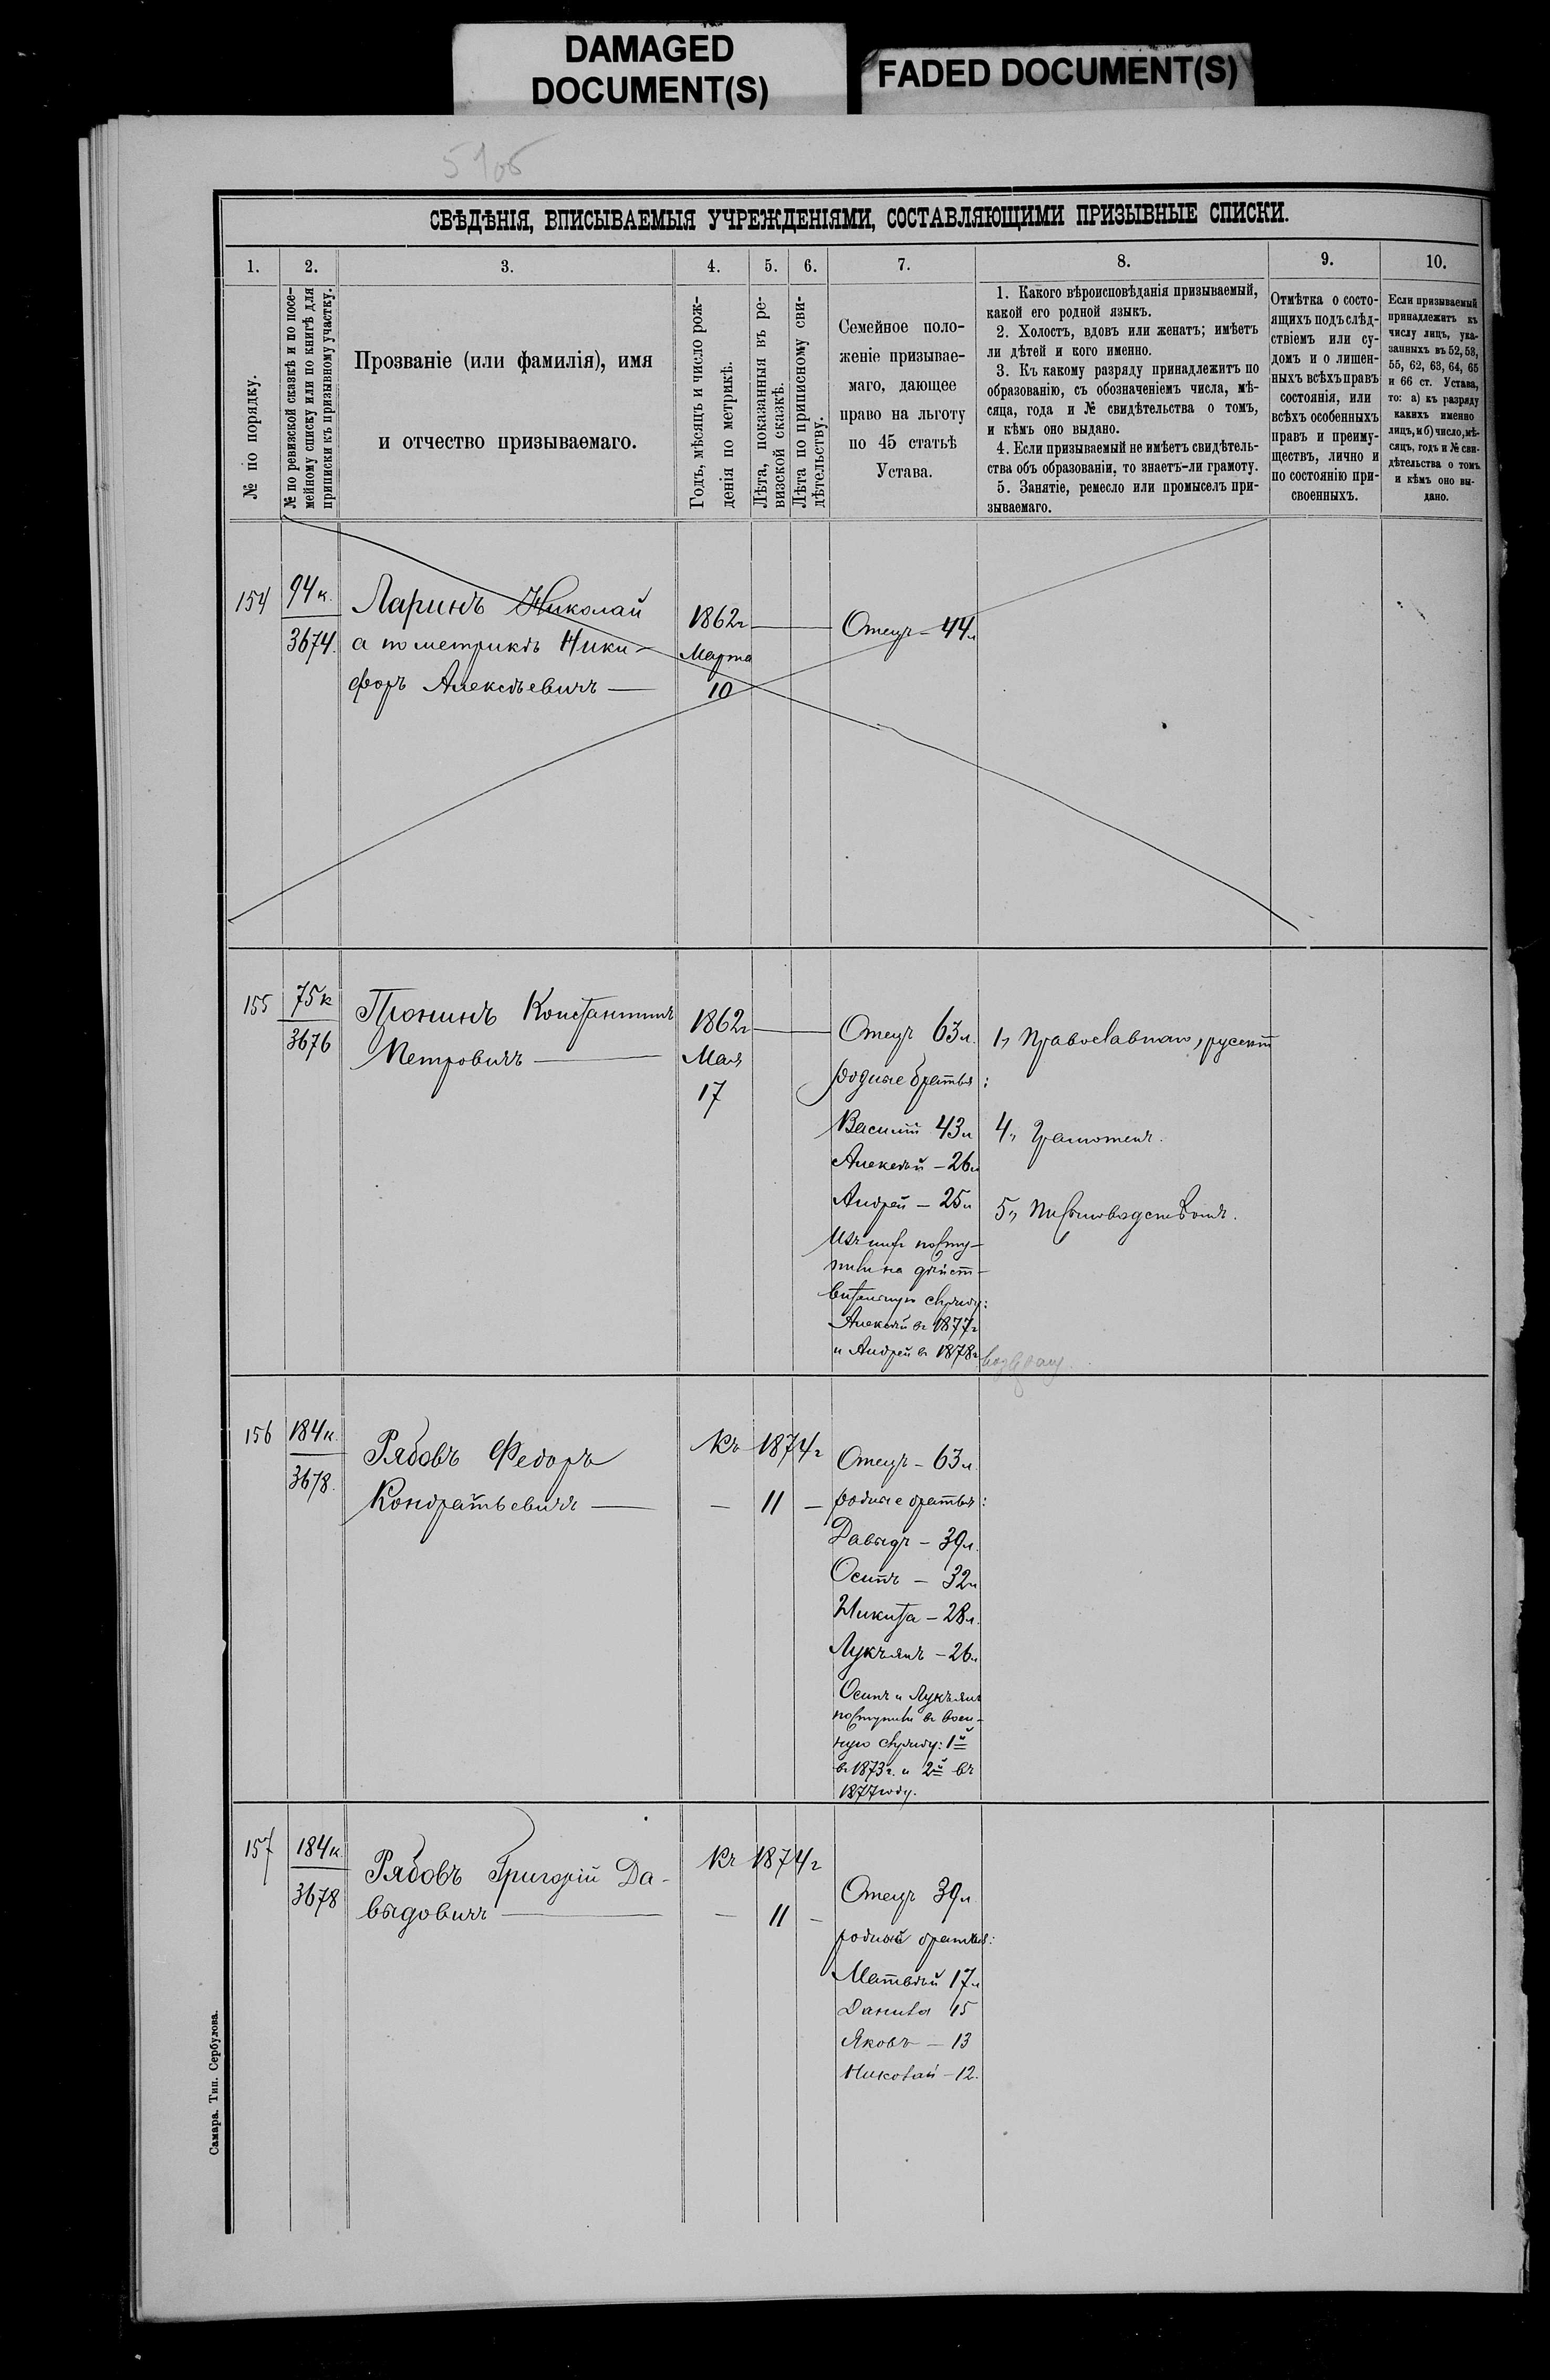 DAMAGED
DOCUMENT(S)
FADED DOCUMENT(S)
СВѢДѢНІЯ, ВПИСЫВАЕМЫЯ УЧРЕЖДЕНІЯМИ, СОСТАВЛЯЮЩИМИ ПРИЗЫВНЫЕ СПИСКИ.
1.
2.
3.
4.
5.
6.
7.
8.
9.
10.
№ по порядку.
№ по ревизской сказкѣ и по посе-
мейному списку или по книгѣ для
приписки къ призывному участку.
Прозваніе (или фамилія), имя
и отчество призываемаго.
Годъ, мѣсяцъ и число рож-
денія по метрикѣ.
Лѣта, показанныя въ ре-
визской сказкѣ.
Лѣта по приписному сви-
дѣтельству.
Семейное поло-
женіе призывае-
маго, дающее
право на льготу
по 45 статьѣ
Устава.
1. Какого вѣроисповѣданія призываемый,
какой его родной языкъ.
2. Холостъ, вдовъ или женатъ; имѣетъ
ли дѣтей и кого именно.
3. Къ какому разряду принадлежитъ по
образованію, съ обозначеніемъ числа, мѣ-
сяца, года и № свидѣтельства о томъ,
и кѣмъ оно выдано.
4. Если призываемый не имѣетъ свидѣтель-
ства объ образованіи, то знаетъ-ли грамоту.
5. Занятіе, ремесло или промыселъ при-
зываемаго.
Отмѣтка о состо-
ящихъ подъ слѣд-
ствіемъ или су-
домъ и о лишен-
ныхъ всѣхъ правъ
состоянія, или
всѣхъ особенныхъ
правъ и преиму-
ществъ, лично и
по состоянію при-
своенныхъ.
Если призываемый
принадлежитъ къ
числу лицъ, ука-
занныхъ въ 52, 53,
55, 62, 63, 64, 65
и 66 ст. Устава,
то: а) къ разряду
какихъ именно
лицъ, и б) число, мѣ-
сяцъ, годъ и № сви-
дѣтельства о томъ
и кѣмъ оно вы-
дано.
154
94 к.
3674.
Ларинъ Николай
а по метрикѣ Ники-
форъ Алексѣевичъ
1862г
Марта
10
Отецъ - 44 л
155
75 к
3676
Пронинъ Константинъ
Петровичъ
1862г
Мая
17
Отецъ 63 л.
родные братья:
Василій 43 л
Алексѣй - 26 л
Андрей - 25 л
Изъ нихъ посту-
пили на дѣйст-
вительную службу:
Алексѣй въ 1877г
и Андрей въ 1878г
1, Православнаго, русскій
4, Грамотенъ.
5, Письмоводствомъ.
156
184 к.
3678.
Рябовъ Федоръ
Кондратьевичъ
Къ 1874г
— 11 —
Отецъ - 63 л.
родные братья:
Давыдъ - 39 л.
Осипъ - 32 л
Никита - 28 л.
Лукъянъ - 26 л
Осипъ и Лукъянъ
поступили въ воен-
ную службу: 1й
въ 1873г. и 2й въ
1877 году.
157
184 к.
3678
Рябовъ Григорій Да-
выдовичъ
Къ 1874г
— 11 —
Отецъ 39 л
родные братья:
Матвѣй 17 л
Данила 15
Яковъ - 13
Николай - 12.
Самара. Тип. Сербулова.